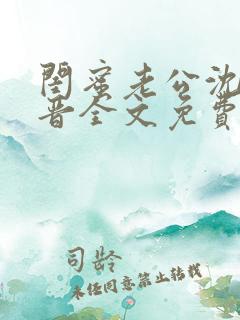 閨蜜老公沈
晋全文免費
司龄
未经同意禁止转载